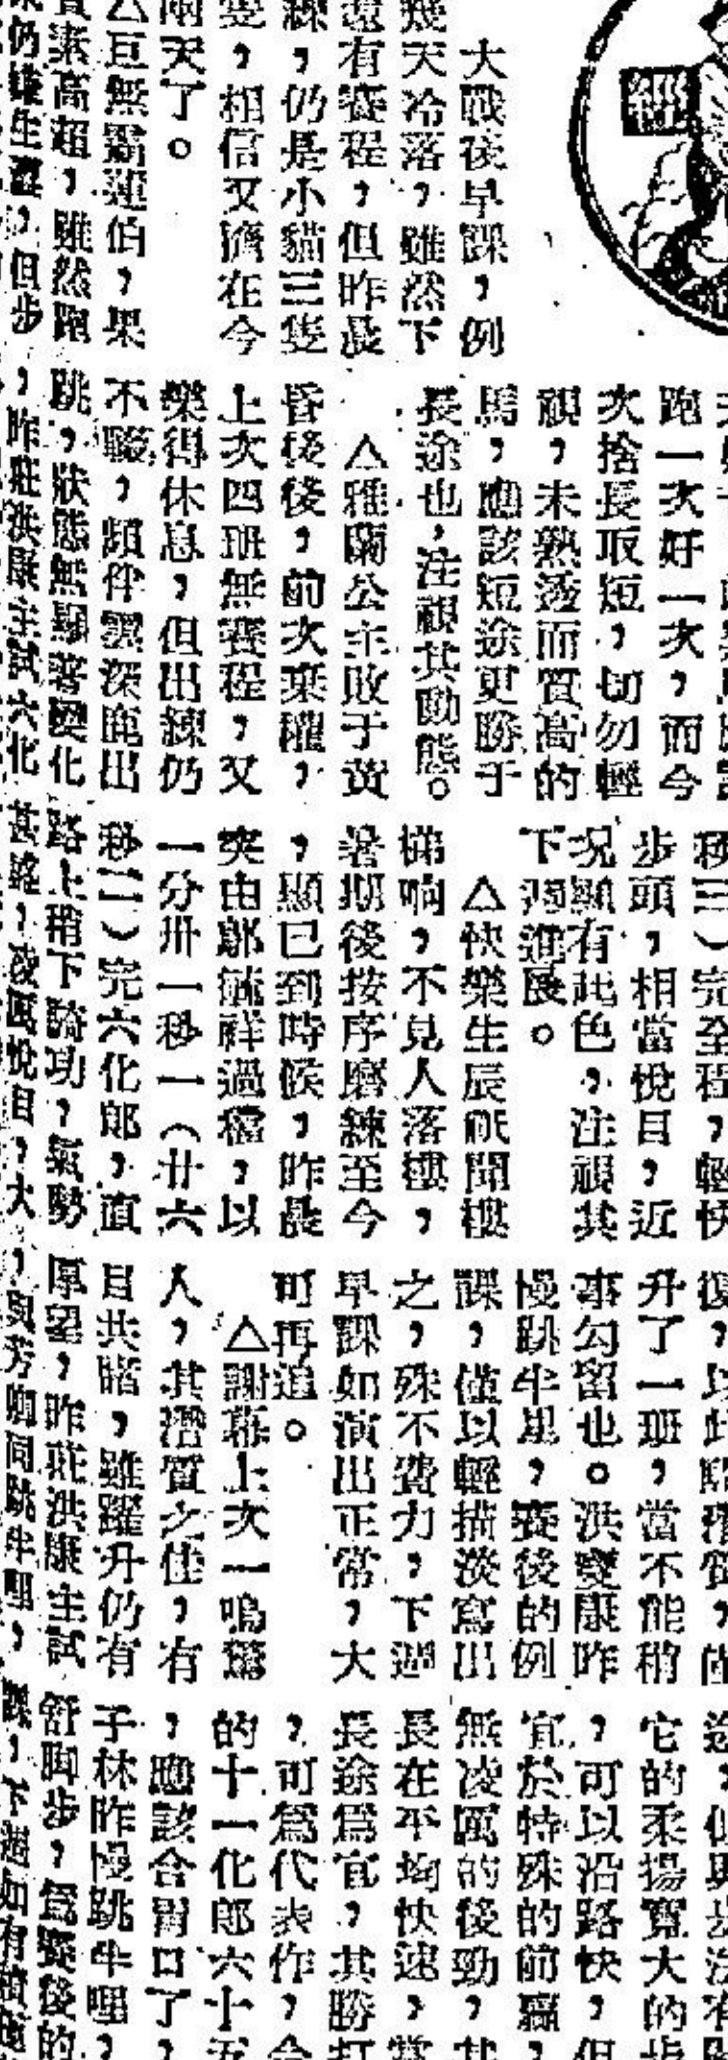 經
大戰後早課，例
幾天冷落，雖然下
還有賽程，但昨晨
練，仍是小貓三隻
隻，相信又擠在今
兩天了。
△巨無霸蓮伯，果
質素高超，雖然跑
仍嫌生澀，但步
跑一次好一次，而今
次捨長取短，切勿輕
視，未熟透而質高的
馬，應該短途更勝于
長途也，注視其動態。
△雅蘭公主敗于黃
昏後後，前次棄權，
上次四班無賽程，又
樂得休息，但出練仍
不輟，頻伴雲深鹿出
跳，狀態無顯著變化
，昨莊洪康主試六化
秒三）完全程，輕快
步頭，相當悅目，近
況顯有起色，注視其
下週進展。
△快樂生辰祇聞樓
梯响，不見人落樓，
暑期後按序磨練至今
，顯已到時候，昨晨
突由鄭毓祥過檔，以
一分卅一秒一（廿六
秒二）完六化郎，直
路上稍下騎功，氣勢
甚銳，凌厲悅目，大
升了一班，當不能稍
事勾留也。洪變康昨
慢跳半里，賽後的例
課，僅以輕描淡寫出
之，殊不費力，下週
早課如演出正常，大
可再追。
△謝幕上次一鳴驚
人，其潛質之佳，有
目共睹，雖躍升仍有
厚望，昨莊洪康主試
，與芳 同跳半里，
它的柔揚寬大的步
，可以沿路快，但
宜於特殊的前贏，
無凌厲的後勁，其
長在平均快速，當
長途爲宜，其勝打
，可爲代表作，今
的十一化郎六十五
，應該合胃口了，
子林昨慢跳半哩，
舒脚步，爲賽後的
課，下週如有